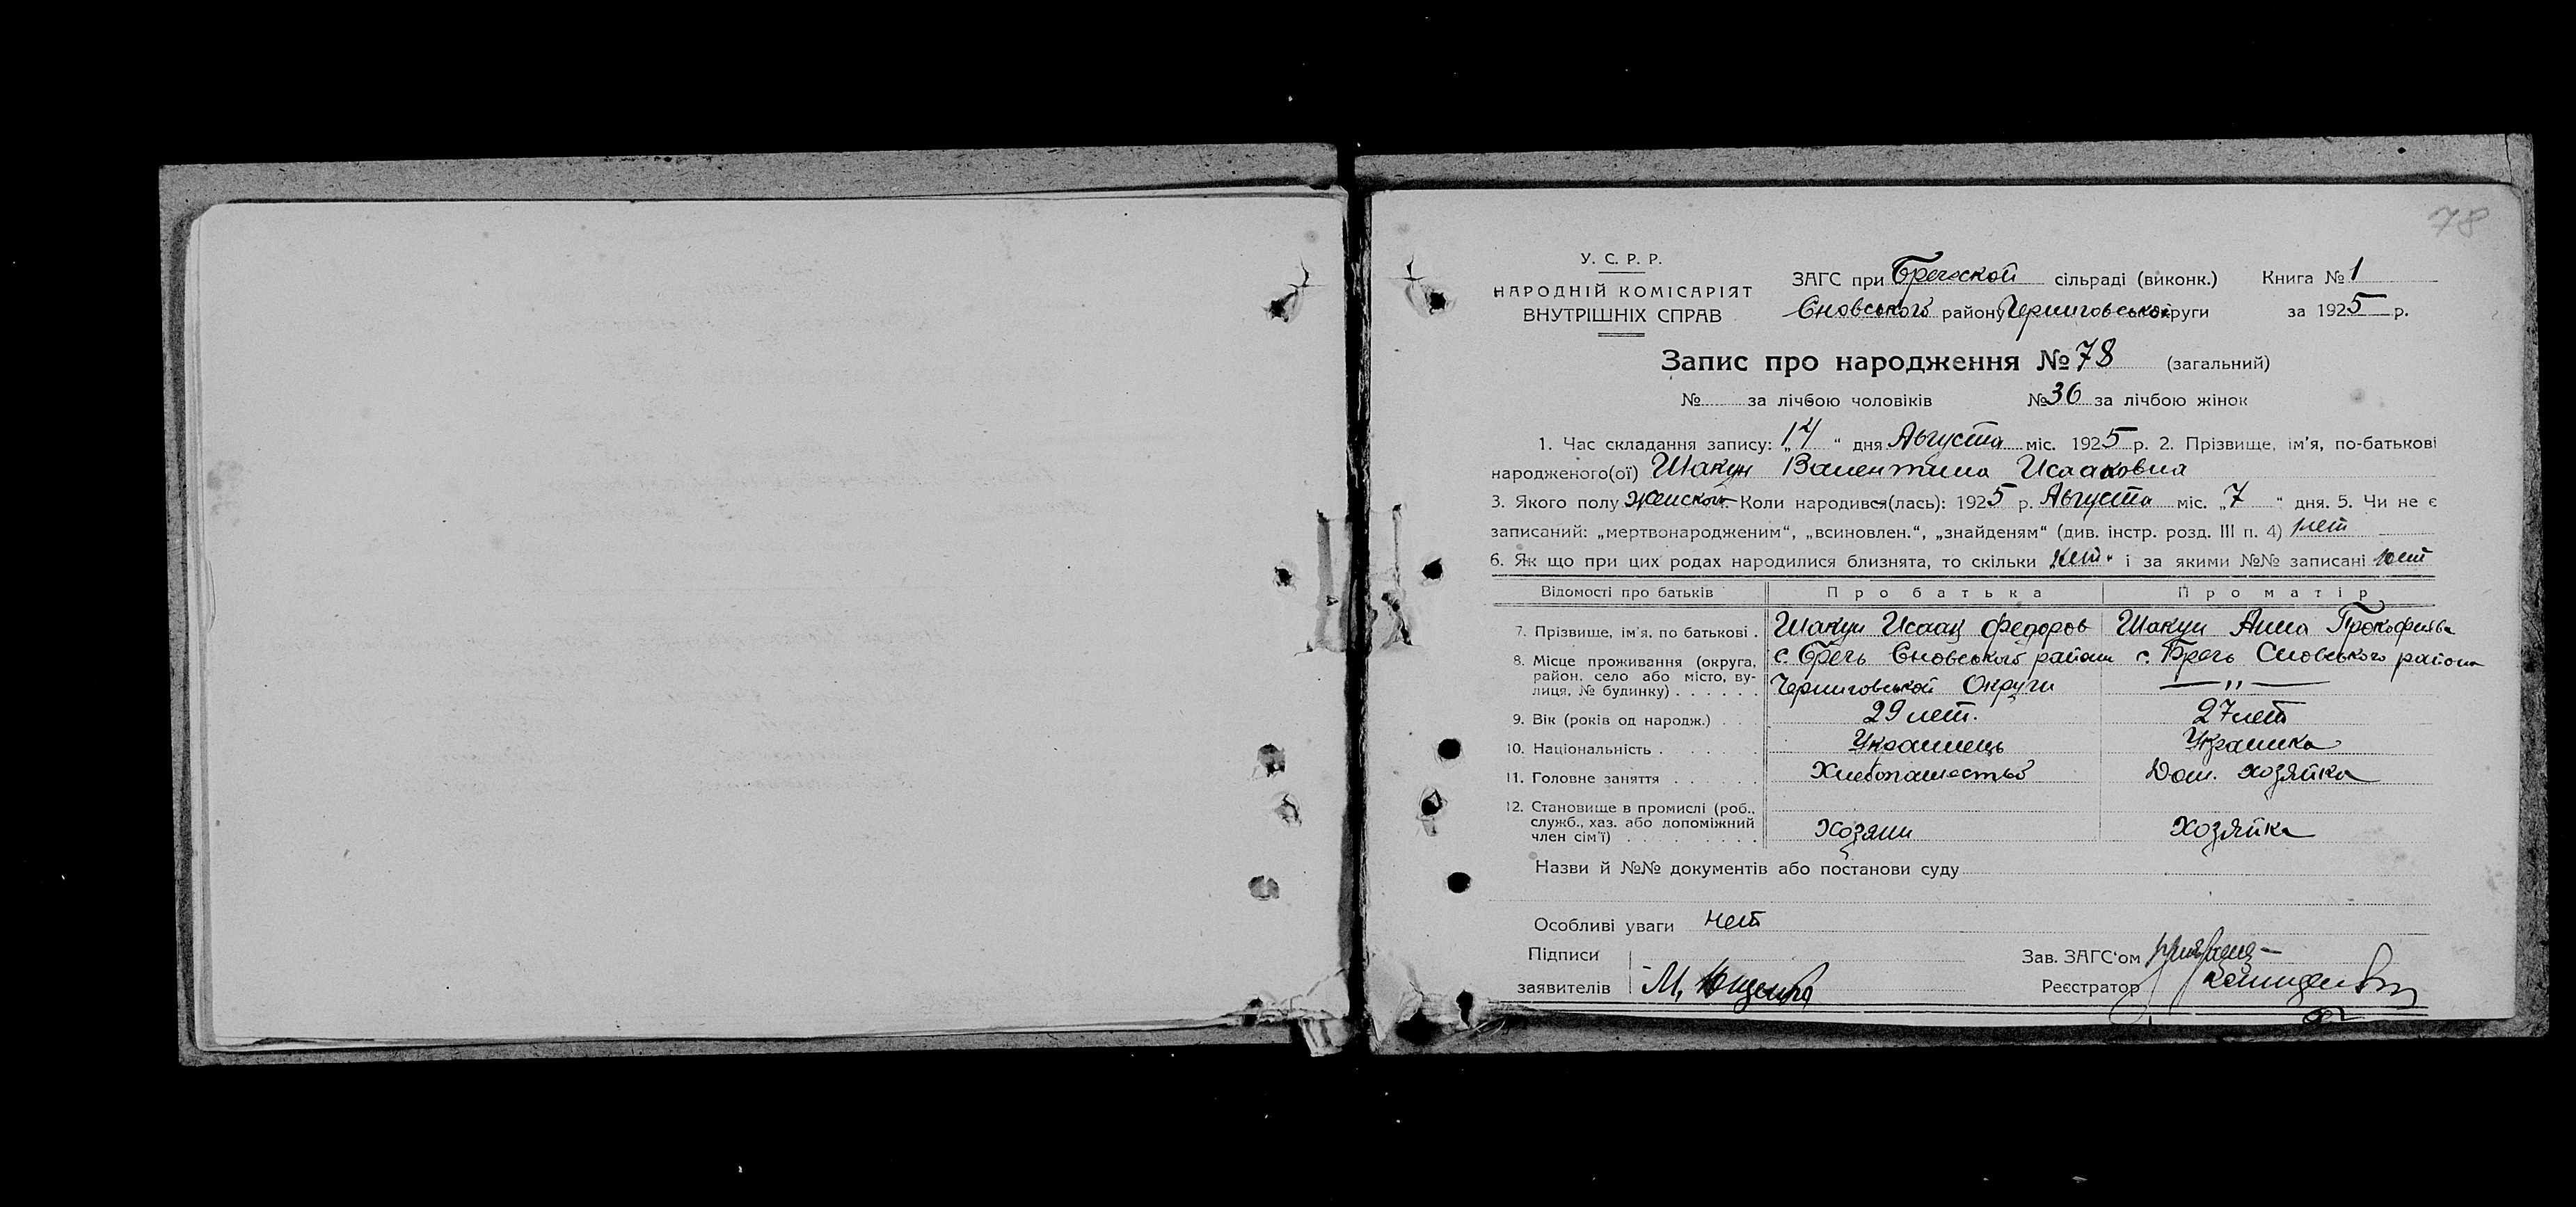 78
У. С. Р. Р.
НАРОДНІЙ КОМІСАРІЯТ
ВНУТРІШНІХ СПРАВ
ЗАГС при Бречской сільраді (виконк.) Книга № 1
Сновського району Черниговськой округи за 1925 р.
Запис про народження № 78 (загальний)
№ за лічбою чоловіків № 36 за лічбою жінок
1. Час складання запису: „14 “ дня Августа міс. 1925 р. 2. Прізвище, ім'я, по-батькові
народженого(ої) Шакун Валентина Исааковна
3. Якого полу Женского 4. Коли народився(лась): 1925 р. Августа міс. „7 “ дня. 5. Чи не є
записаний: „мертвонародженим“, „всиновлен.“, „знайденям“ (див. інстр. розд. III п. 4) нет
6. Як що при цих родах народилися близнята, то скільки „нет“ і за якими №№ записані нет
Відомості про батьків Про батька Про матір
7. Прізвище, ім'я, по батькові . Шакун Исаак Федоров Шакун Анна Прокофиевна
8. Місце проживання (округа, район, село або місто, вулиця, № будинку) . . . . . . с. Бречь Сновського района с. Бречь Сновського района
Черниговськой Округи — „ —
9. Вік (років од народж.) . . . 29 лет. 27 лет
10. Національність . . . . . . Украинець Украинка
11. Головне заняття . . . . . Хлебопашество Дом. хозяйка
12. Становище в промислі (роб., служб., хаз. або допоміжний член сім'ї) . . . . . . . . Хозяин Хозяйка
Назви й №№ документів або постанови суду
Особливі уваги нет
Підписи
заявителів М. Ющенко
Зав. ЗАГС'ом
Реєстратор